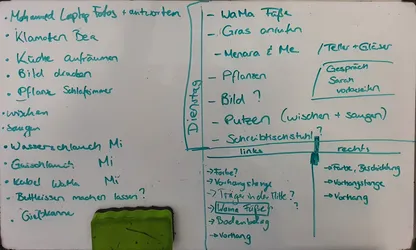 Mohamed Laptop Fotos + antworten
Klamotten Bea
Küche aufräumen
Bild drucken
Pflanze Schlafzimmer
wischen
saugen
Wasserschlauch Mi
Gasschlauch Mi
Kabel WaMa Mi
Bettkissen machen lassen?
Gießkanne
Dienstag
- WaMa Füße
- Gras anrufen
- Menara & Me
/ Teller + Gläser
- Pflanzen
Gespräch
Sarah
vorbereiten
- Bild ?
- Putzen (wischen + saugen)
- Schreibtischstuhl ?
links
→ Farbe?
→ Vorhangstange
→ Träger in der Mitte?
→ Wama Füße ?
→ Bodenbelag
→ Vorhang
rechts
→ Farbe, Beschichtung
→ Vorhangstange
→ Vorhang